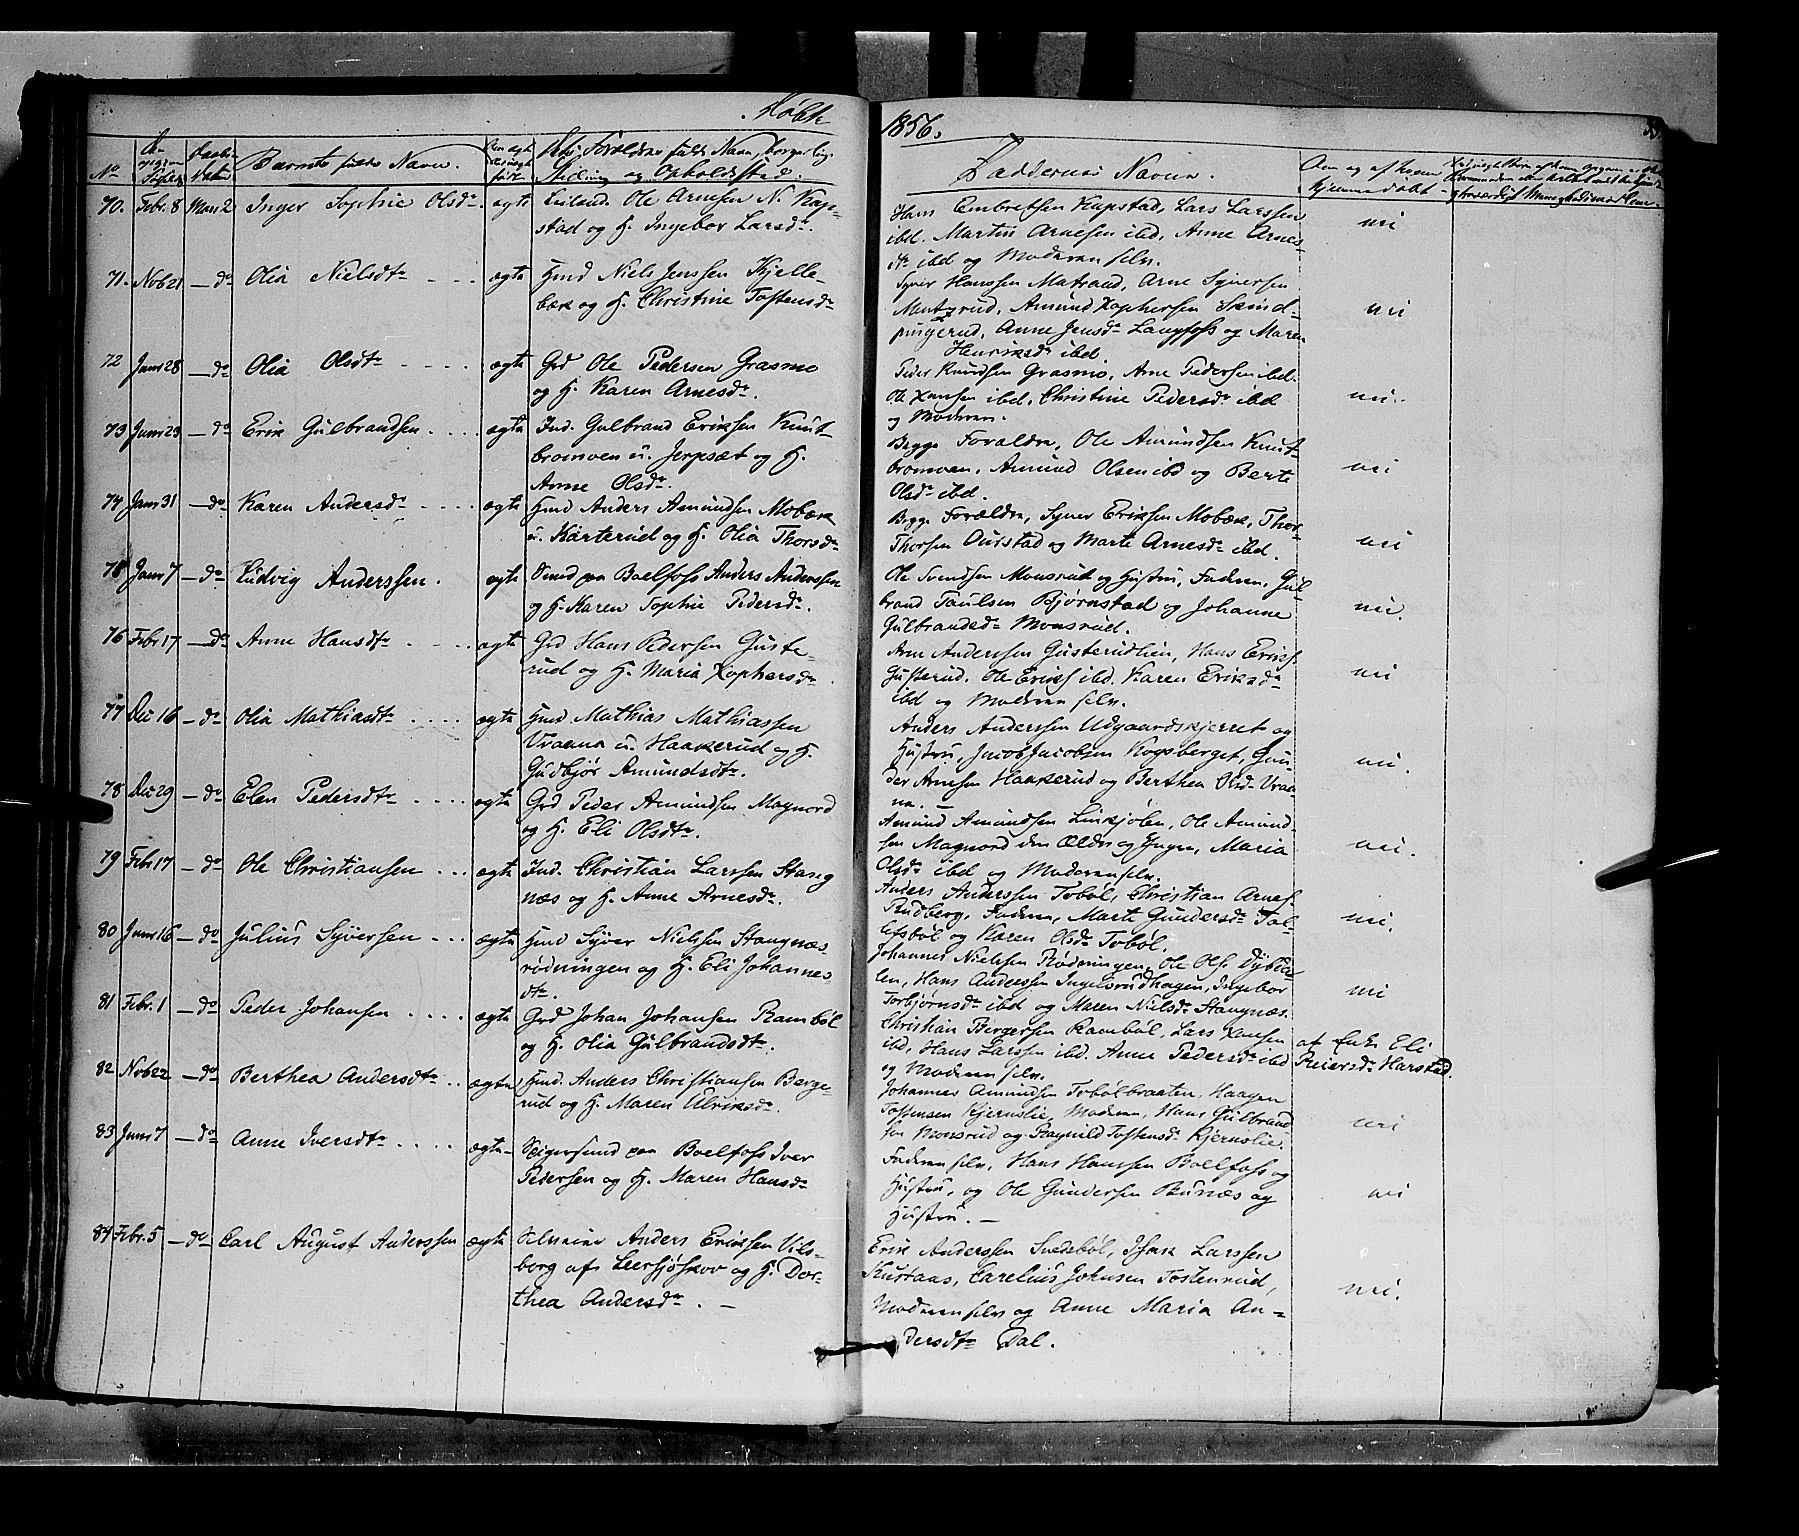 Døbte
1856.
No
Barnets fulde Navn.
Faddernes Navne.
70. Febr. 8 Mars 2 Inger Sophie Olsdr ægte Leilænd. Ole Arnesen N. Kap-
stad og H. Ingebor Larsdr.
Hans Embretsen Kapstad, Lars Larssen
ibd. Martin Arnesen ibd, Anne Arnes-
dtr ibd og Moderen selv.
nei
71. Nob 21 — do Olia Nielsdtr ægte Hmd Niels Jenssen Kjelle-
bæk og H. Christine Tostensdr
Syver Hanssen Matrand, Arne Syversen
Myrerud, Amund Xophersen Skind-
pungerud, Anne Jensdr Langfoss og Maren
Henriksdr ibd.
nei
72 Janr 28 — do Olia Olsdtr ægte Grd Ole Pedersen Grasmo
og H. Karen Arnesdr.
Peder Knudsen Grasmo, Arne Pedersen ibd.
Ole Hansen ibd, Christine Pedersdr ibd
og Moderen.
nei.
73 Janr 23 — do Erik Gulbrandsen ægte Ind. Gulbrand Eriksen Knut-
bromoen u. Jerpsæt og H.
Anne Olsdr.
Begge Forældre, Ole Amundsen Knut-
bromoen, Amund Olsen ibd og Berte
Olsdr ibd.
nei
74 Janr 31 — do Karen Andersdr ægte Hmd Anders Amundsen Mobæk
u. Karterud og H. Olia Thorsdr
Begge Forældre, Syver Eriksen Mobæk, Thor
Thorsen Ourstad og Marte Arnesdr ibd.
nei
75 Janr 7 — do Ludvig Anderssen. ægte Smed paa Boelfoss Anders Anderssen
og H. Karen Sophie Pedersdr.
Ole Svendsen Monsrud og Hustru, Faderen, Gul-
brand Paulsen Bjørnstad og Johanne
Gulbrandsdr Monsrud.
nei.
76 Febr 17 — do Anne Hansdtr ægte Grd Hans Pedersen Guste-
rud og H. Maria Xophersdr
Arne Anderssen Gusterudlien, Hans Eriks.
Gusterud, Ole Eriks ibd. Karen Eriksdr
ibd og Moderen selv.
nei
77 Dec 16 — do Olia Mathiasdtr ægte Hmd. Mathias Mathiassen
Vraana u. Haakerud og H.
Gudbjør Amundsdtr.
Anders Anderssen Udgaardskjerret og
Hustru, Jacob Jacobsen Kogsberget, Gun-
der Arnesen Haakerud og Berthea Olsdr Vraa-
na. —
nei.
78 Dec 29 — do Elen Pedersdtr ægte Grd Peder Amundsen Magnord
og H. Eli Olsdtr.
Amund Amundsen Linkjølen, Ole Amund-
sen Magnord den Ældre og Yngre, Maria
Olsdr ibd og Moderen selv.
nei.
79 Febr 17 — do Ole Christiansen ægte Ind. Christian Larssen Stang
næs og H. Anne Arnesdr.
Anders Anderssen Tobøl, Christian Arnes-
Rudberg, Faderen, Marte Gundersdr Tol-
lefsbøl og Karen Olsdr Tobøl.
nei.
80 Janr 16 — do Julius Syversen ægte Hmd Syver Nielssen Stangnæs
rødningen og H. Eli Johannes
dtr.
Johannes Nielssen Rødningen, Ole Ols. Dybda-
len, Hans Anderssen Ingelsrudhagen, Ingebor
Torbjørnsdr ibd og Maren Nielsdr Stangnæs.
nei
81 Febr. 1 — do Peder Johansen ægte Grd Johan Johansen Rambøl
og H. Olia Gulbrandsdtr.
Christian Bergersen Rambøl, Lars Hansen
ibd, Hans Larssen ibd. Anne Pedersdr ibd
og Moderen selv.
af Enke Eli
Reiersdr Harstad.
82 Nob 22 — do Berthea Andersdtr ægte Hmd. Anders Christiansen Berge-
rud og H. Maren Ulriksdr.
Johannes Amundsen Tobølbraaten, Haagen
Tostensen Kjernslie, Moderen, Hans Gulbrand
sen Monsrud og Ragnild Tostensdr Kjernslie.
nei
83 Janr 7 — do Anne Iversdtr ægte Spigersmed paa Boelfoss Iver
Pedersen og H. Maren Hansdr
Faderen selv, Hans Hanssen Boelfoss og
Hustru, og Ole Gundersen Bunæs og
Hustru. —
nei
84 Febr. 5 — do Carl August Anderssen ægte Anders Eriksen Vils-
borg af Leersjöskov og H. Dor-
thea Andersdr. —
Erik Anderssen Svedsbøl, Isak Larssen
Skustaas, Carelius Johnsen Tostenrud,
Moderen selv og Anne Maria An-
dersdtr Dal.
nei.